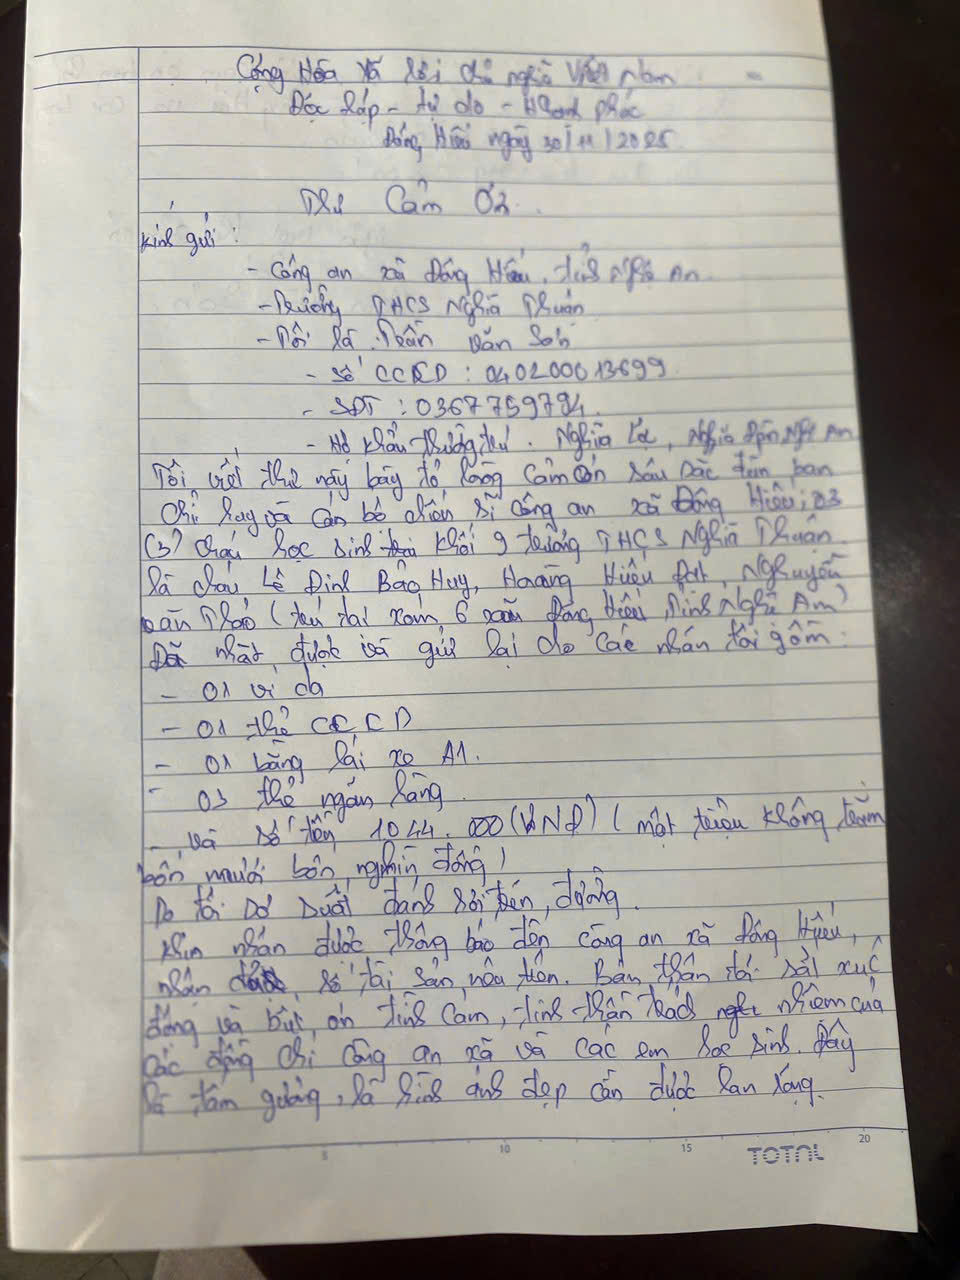 Cộng Hòa Xã hội chủ nghĩa Việt Nam
Độc lập - tự do - Hạnh phúc
Đông Hiếu ngày 30/11/2025
Thư Cảm Ơn.
Kính gửi:
- Công an xã Đông Hiếu, tỉnh Nghệ An
- Trường THCS Nghĩa Thuận
- Tôi là Trần Văn
- Số CCCD: 040200013699
- SĐT: 0367759794
- Hộ khẩu thường trú. Nghĩa Lộc, Nghĩa Đàn Nghệ An
Tôi viết thư này bày tỏ lòng cảm ơn sâu sắc đến ban
chỉ huy và cán bộ chiến sĩ công an xã Đông Hiếu; 03
(3) cháu học sinh khối 9 trường THCS Nghĩa Thuận
là cháu Lê Đình Bảo Huy, Hoàng Hiếu Đạt, Nguyễn
văn (trú tại xóm 6 xã Đông Hiếu, Tỉnh Nghệ An)
Đã nhặt được và gửi lại cho cá nhân tôi gồm:
- 01 ví da
- 01 thẻ CCCD
- 01 bằng lái xe A1.
- 03 thẻ ngân hàng.
- và số tiền 1044.000 (VNĐ) (một triệu không trăm
bốn mươi bốn nghìn đồng)
Do tôi sơ suất đánh rơi trên đường.
Khi nhận được thông báo đến công an xã Đông Hiếu,
nhận số tài sản nêu trên. Bản thân tôi rất xúc
động và biết ơn tình cảm, tinh thần trách nhiệm của
các đồng chí công an xã và các em học sinh. Đây
là tấm gương, là hình ảnh đẹp cần được lan rộng.
5 10 15 20
TOTAL